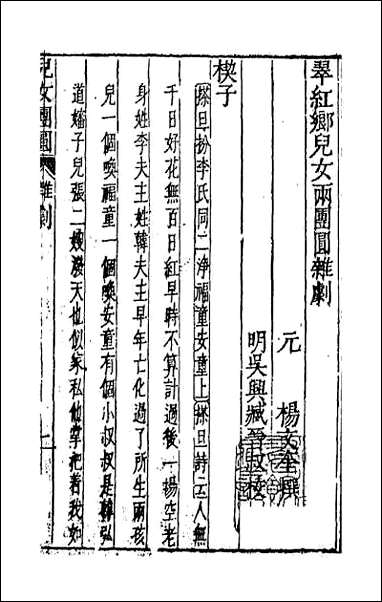 翠紅鄉兒女兩團圓雜劇
元　楊文奎撰
明吳興臧晉叔校
楔子
搽旦扮李氏同二淨福童安童上搽旦詩云人無
千日好花無百日紅早時不算計過後一場空老
身姓李夫主姓韓夫主早年亡化過了所生兩孩
兒一個喚福童一個喚安童有個小叔叔是韓弘
道嬸子兒張二嫂潑天也似家私他掌把着我如
兒女團圓　雜劇　一